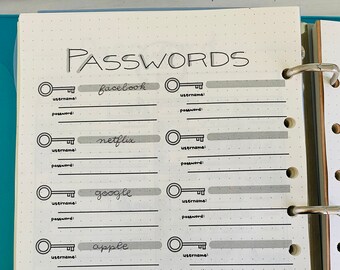 PASSWORDS
facebook
username:
username:
password:
password:
netflix
username:
username:
password:
password:
google
username:
username:
password:
password:
apple
username:
username: